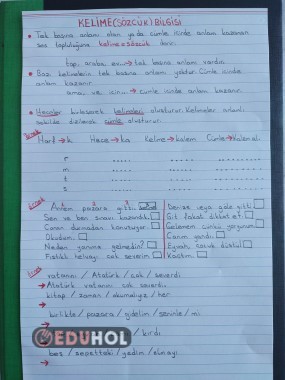 KELİME(SÖZCÜK) BİLGİSİ
Tek başına anlamı olan ya da cümle içinde anlam kazanan
ses topluluğuna kelime=sözcük denir.
top, araba, ev... → tek başına anlamı vardır.
Bazı kelimelerin tek başına anlamı yoktur. Cümle içinde
anlam kazanır.
ama, ve, için... → Cümle içinde anlam kazanır.
Heceler birleşerek kelimeleri oluşturur. Kelimeler anlamlı
şekilde dizilerek cümle oluşturur.
Harf → k Hece → ka Kelime → kalem Cümle →
r
m
t
s
Annem pazara gitti.
Sen ve ben sınavı kazandık.
Canan durmadan konuşuyor.
Okudum.
Neden yanıma gelmedin?
Fıstıklı helvayı çok severim
Denize veya göle gitti
Git fakat dikkat et.
Gelemem çünkü yorgunum
Canım yandı.
Eyvah, çocuk düştü!
Kalktım.
vatanını / Atatürk / çok / severdi
→ Atatürk vatanını çok severdi.
kitap / zaman / okumalıyız / her
→
birlikte / pazara / gidelim / seninle / mi
→
EDUHOL
/ kırdı
beş / sepetteki / yedim / elmayı
→